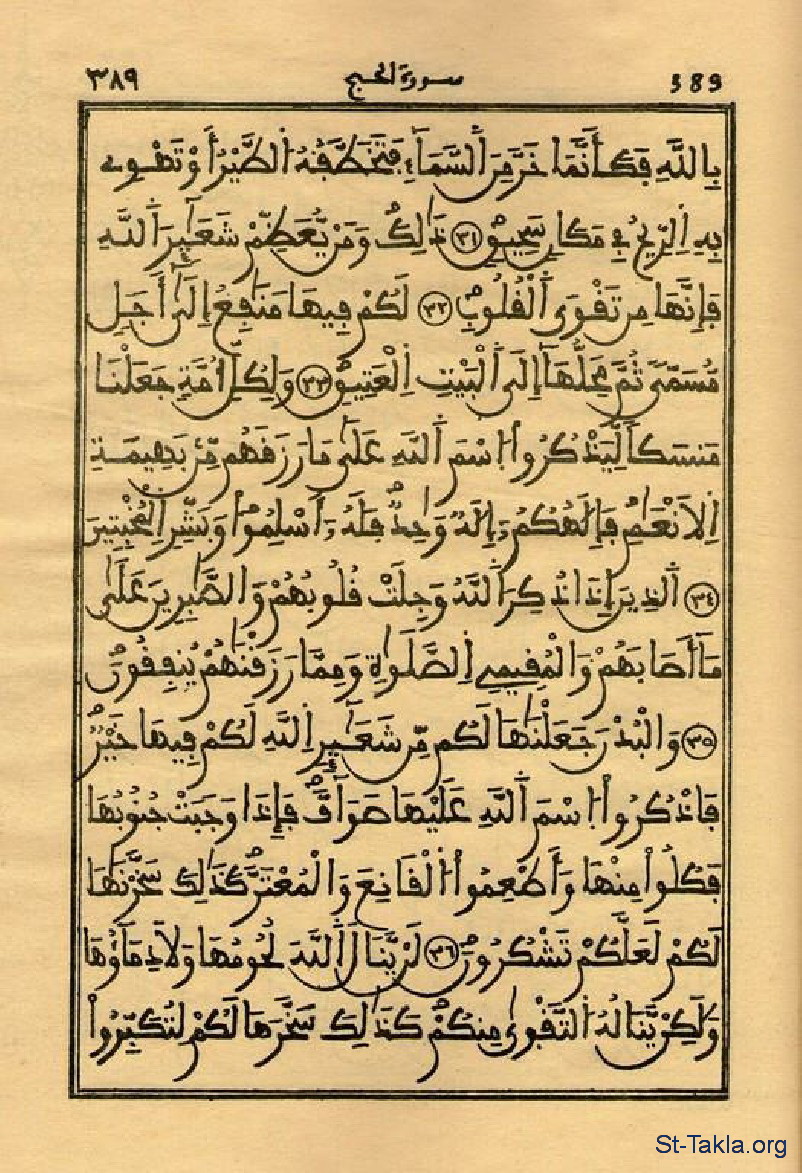 ٣٨٩ سورة الحج 389
بِاللَّهِ فَكَأَنَّمَا خَرَّ مِنَ اَلسَّمَآءِ فَتَخَطَّفُهُ اُلطَّيْرُ أَوْ تَهْوِے
بِهِ اِلرِّيحُ فِے مَكَانٖ سَحِيقٖ ٣١ ذَٰلِكَ وَمَنْ يُّعَظِّمْ شَعَٰٓئِرَ اَللَّهِ
فَإِنَّهَا مِن تَقْوَى اَلْقُلُوبِ ٣٢ لَكُمْ فِيهَا مَنَٰفِعُ إِلَىٰٓ أَجَلٖ
مُّسَمّىٗ ثُمَّ مَحِلُّهَآ إِلَى اَلْبَيْتِ اِلْعَتِيقِ ٣٣ وَلِكُلِّ أُمَّةٖ جَعَلْنَا
مَنسَكاٗ لِّيَذْكُرُواْ اُسْمَ اَللَّهِ عَلَىٰ مَا رَزَقَهُم مِّنۢ بَهِيمَةِ
اِلَانْعَٰمِ فَإِلَٰهُكُمُۥٓ إِلَٰهٞ وَٰحِدٞ فَلَهُۥٓ أَسْلِمُواْ وَبَشِّرِ اِلْمُخْبِتِينَ
٣٤ اَلذِينَ إِذَا ذُكِرَ اَللَّهُ وَجِلَتْ قُلُوبُهُمْ وَالصَّٰبِرِينَ عَلَىٰ
مَآ أَصَابَهُمْ وَالْمُقِيمِے اِلصَّلَوٰةِ وَمِمَّا رَزَقْنَٰهُمْ يُنفِقُونَ
٣٥ وَالْبُدْنَ جَعَلْنَٰهَا لَكُم مِّن شَعَٰٓئِرِ اِللَّهِ لَكُمْ فِيهَا خَيْرٞ
فَاذْكُرُواْ اُسْمَ اَللَّهِ عَلَيْهَا صَوَآفَّ فَإِذَا وَجَبَتْ جُنُوبُهَا
فَكُلُواْ مِنْهَا وَأَطْعِمُواْ اُلْقَانِعَ وَالْمُعْتَرَّ كَذَٰلِكَ سَخَّرْنَٰهَا
لَكُمْ لَعَلَّكُمْ تَشْكُرُونَ ٣٦ لَنْ يَّنَالَ اَللَّهَ لُحُومُهَا وَلَا دِمَآؤُهَا
وَلَٰكِنْ يَّنَالُهُ اُلتَّقْوَىٰ مِنكُمْ كَذَٰلِكَ سَخَّرَهَا لَكُمْ لِتُكَبِّرُواْ
St-Takla.org